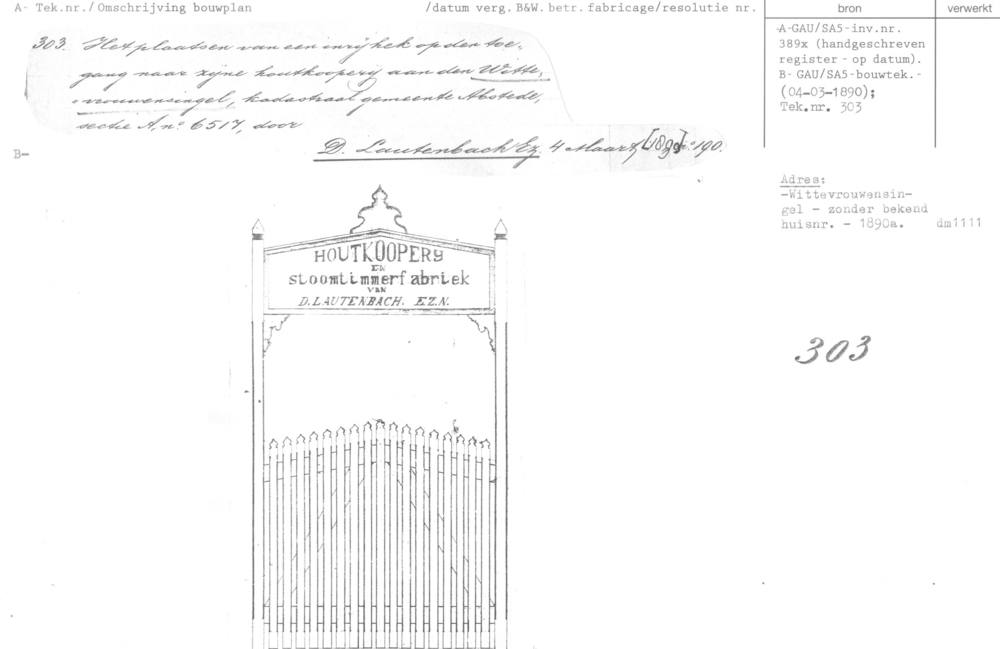 A- Tek.nr./Omschrijving bouwplan /datum verg. B&W. betr. fabricage/resolutie nr. bron verwerkt
303. Het plaatsen van een inrijhek op den toe-
gang naar zijne houtkooperij aan den Witte-
vrouwensingel, kadastraal gemeente Abstede,
sectie A, no 6517, door
D. Lautenbach Ez. 4 Maart [1890] no 190.
B-
A-GAU/SA5-inv.nr.
389x (handgeschreven
register - op datum).
B- GAU/SA5-bouwtek.-
(04-03-1890);
Tek.nr. 303
Adres:
-Wittevrouwensin-
gel - zonder bekend
huisnr. - 1890a. dm1111
303
HOUTKOOPERY
EN
stoomtimmerfabriek
VAN
D. LAUTENBACH. EZN.